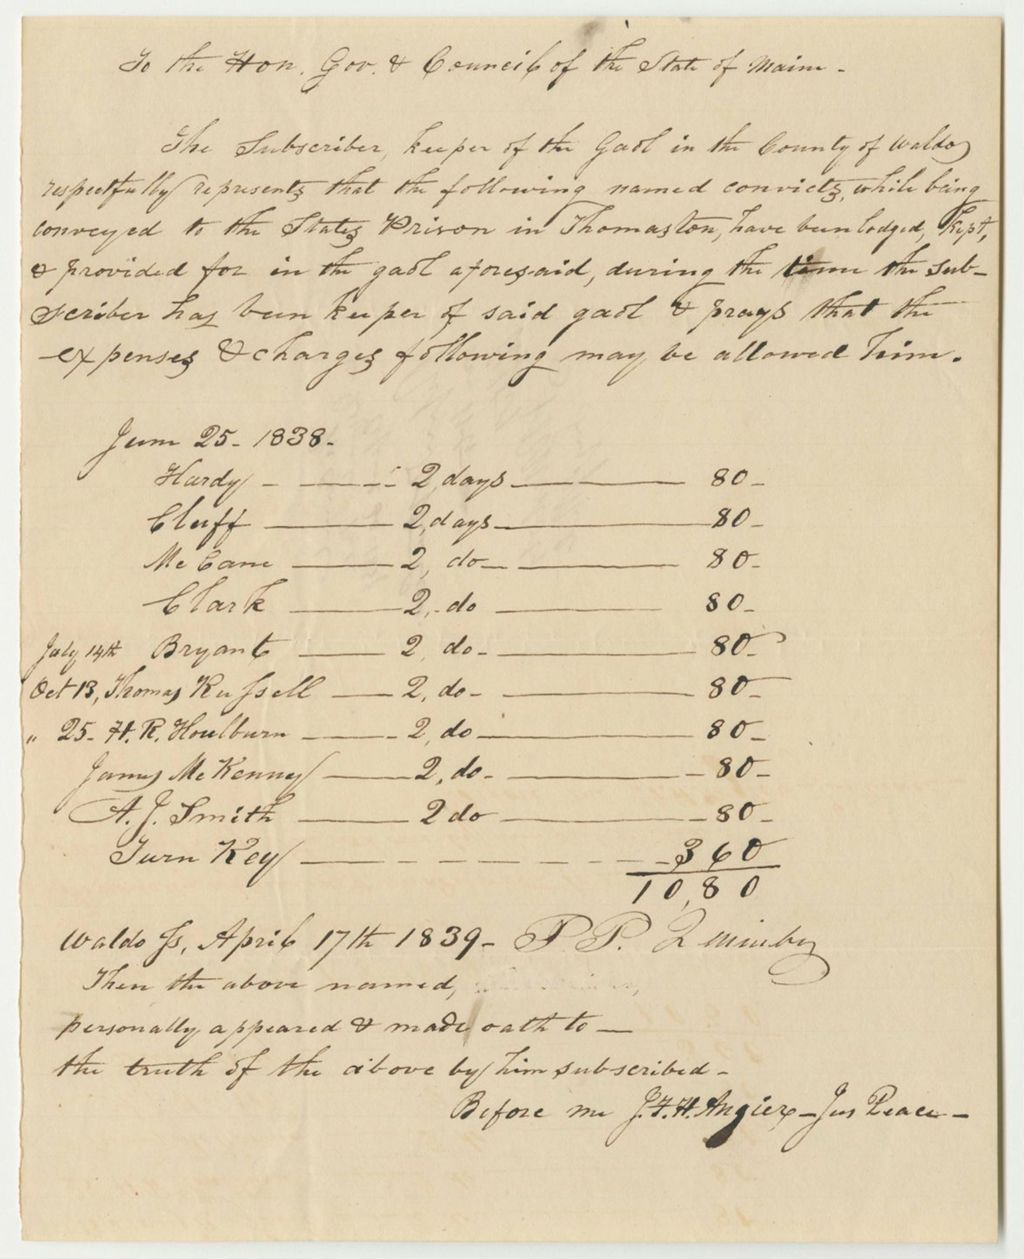 To the Hon. Gov. & Council of the State of Maine -
The Subscriber, keeper of the Gaol in the County of Waldo
respectfully represents that the following named convicts, while being
conveyed to the States Prison in Thomaston, have been lodged, kept,
& provided for in the gaol aforesaid, during the time the sub-
scriber has been keeper of said gaol & prays that the
expenses & charges following may be allowed him.
June 25 - 1838 -
Hardy - 2 days - 80 -
Cluff - 2, days - 80 -
McCane - 2, do - 80 -
Clark - 2, do - 80 -
July 14th Bryant - 2, do - 80 -
Oct 13, Thomas Russell - 2, do - 80 -
" 25 - H. R. Houlburn - 2, do - 80 -
James McKenney - 2, do - 80 -
A. J. Smith - 2 do - 80 -
Turn Key - 3 60
10,80
Waldo Ss, April 17th 1839 - P P. Quimby
Then the above named,
personally appeared & made oath to -
the truth of the above by him subscribed -
Before me J. F. H. Angier - Jus Peace -